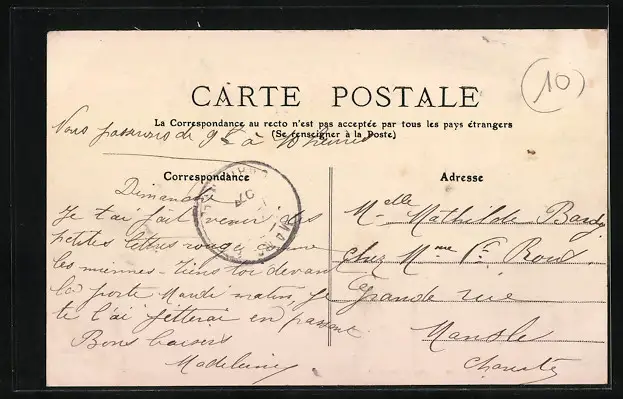 10
CARTE POSTALE
La Correspondance au recto n'est pas acceptée par tous les pays étrangers
(Se renseigner à la Poste)
Nous passerons de 9 h à 10 heures
Correspondance
Adresse
Dimanche
Je t'ai fait venir des
petites lettres rouges comme
les miennes - tiens toi devant
la porte Mardi matin, je
te l'ai jetterai en passant
Bons baisers
Madeleine
Melle Mathilde Bardy
chez Mme Roux
Grande rue
Mansle
Charente